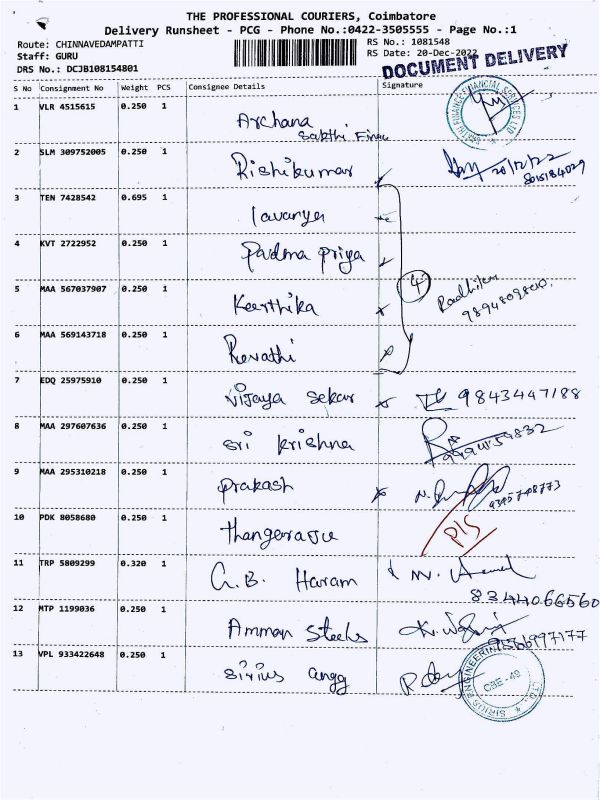 THE PROFESSIONAL COURIERS, Coimbatore
Delivery Runsheet - PCG - Phone No.:0422-3505555 - Page No.:1
Route: CHINNAVEDAMPATTI
RS No.: 1081548
Staff: GURU
RS Date: 20-Dec-2022
DRS No.: DCJB108154801
DOCUMENT DELIVERY
S No Consignment No Weight PCS Consignee Details Signature
1 VLR 4515615 0.250 1 Archana
Sakthi Finan
2 SLM 309752005 0.250 1 Rishikumar 20/12/22
8015184029
3 TEN 7428542 0.695 1 lavanya
4 KVT 2722952 0.250 1 Padma Priya
4
5 MAA 567037907 0.250 1 Keerthika Radhika
6 MAA 569143718 0.250 1 Revathi
7 EDQ 25975910 0.250 1 Vijaya Sekar 9843447188
8 MAA 297607636 0.250 1 Sri Krishna
9 MAA 295310218 0.250 1 Prakash
10 PDK 8058680 0.250 1 thangeraju P/S
11 TRP 5809299 0.320 1 G.B. Haram
8344066560
12 MTP 1199036 0.250 1 Amman Steels
9566997177
13 VPL 933422648 0.250 1 Sirius angg
CBE-49